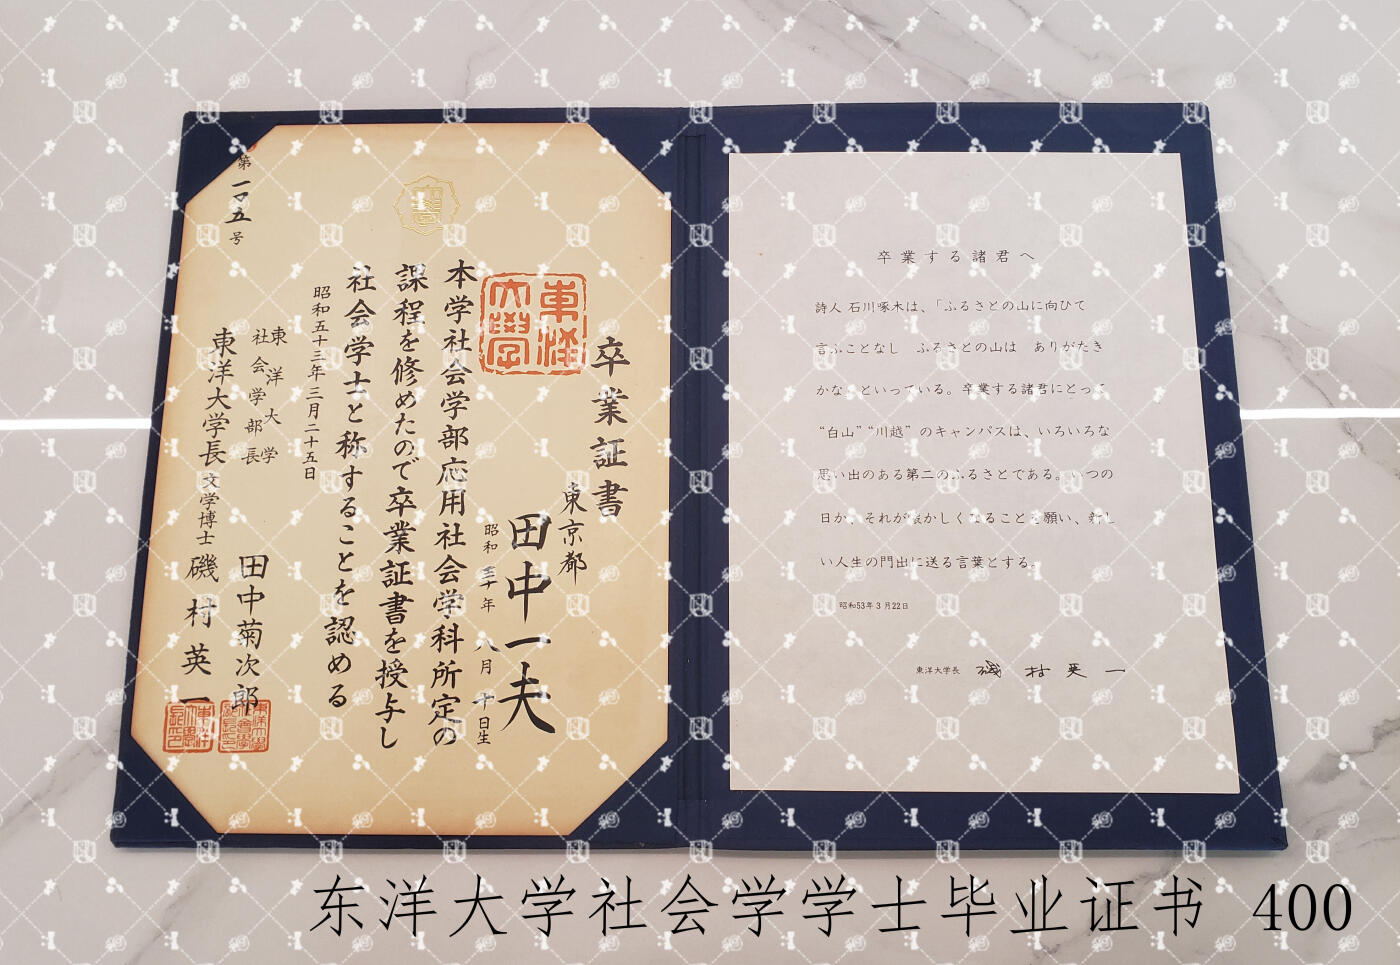 卒業証書
東洋大学
東京都
田中一夫
昭和三十年八月十日生
本学社会学部応用社会学科所定の
課程を修めたので卒業証書を授与し
社会学士と称することを認める
昭和五十三年三月二十五日
東洋大学
社会学部長
田中菊次郎
東洋大学長 文学博士 磯村英一
第一〇五号
卒業する諸君へ
詩人 石川啄木は、「ふるさとの山に向ひて
言ふことなし ふるさとの山は ありがたき
かな」といっている。卒業する諸君にとって
“白山”“川越”のキャンパスは、いろいろな
思い出のある第二のふるさとである。いつの
日か、それが懐かしくなることを願い、新し
い人生の門出に送る言葉とする。
昭和53年3月22日
東洋大学長 磯村英一
东洋大学社会学学士毕业证书 400